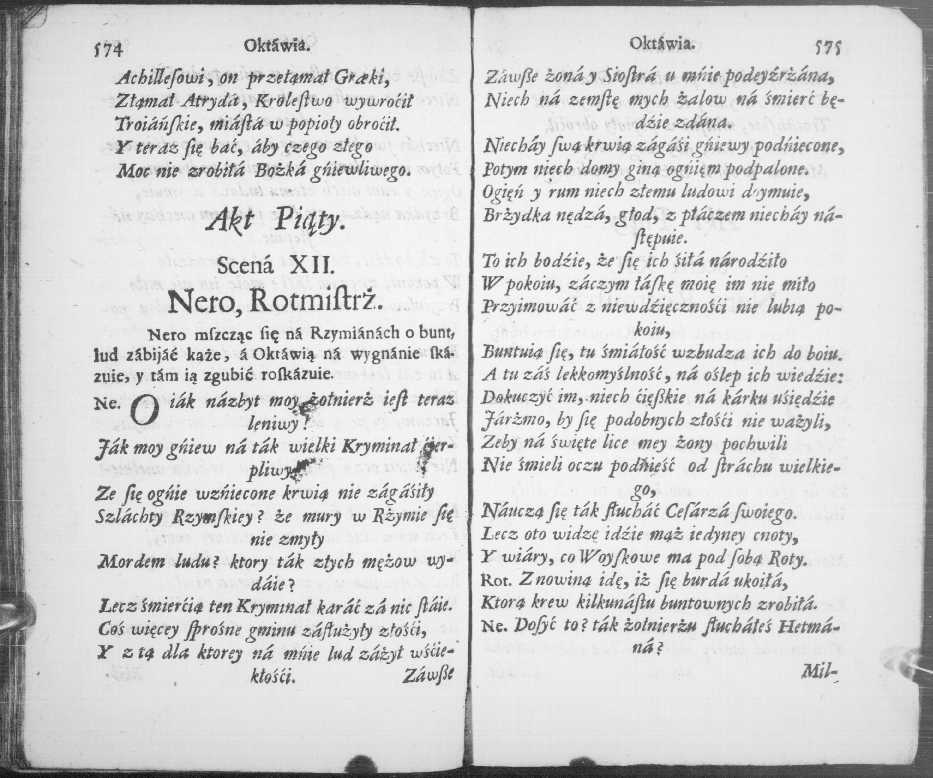 574
Oktáwia.
Achillesowi, on przełamał Græki,
Złamał Atrydá, Krolestwo wywroćił
Troiáńskie, miástá w popioły obroćił.
Y teraz się bać, áby czego złego
Moc nie zrobiłá Bożká gńiewliwego.
Akt Piąty.
Scená XII.
Nero, Rotmistrż.
Nero mszcząc się ná Rzymiánách o bunt,
lud zábijáć każe, á Oktáwią ná wygnánie ská-
zuie, y tám ią zgubić roskázuie.
Ne. O iák názbyt moy żołnierż iest teraz
leniwy!
Ják moy gńiew ná ták wielki Kryminał ćier-
pliwy
Ze się ogńie wzńiecone krwią nie zágáśiły
Szláchty Rzymskiey? że mury w Rżymie się
nie zmyły
Mordem ludu? ktory ták złych mężow wy-
dáie?
Lecz śmierćią ten Kryminał karáć zá nic stáie.
Coś więcey sprosne gminu zásłużyły złośći,
Y z tą dla ktorey ná mńie lud záżył wśćie-
kłośći.
Záwsze
Oktáwia.
575
Záwsze żoná y Siostrá u mńie podeyźrżána,
Niech ná zemstę mych żalow ná śmierć bę-
dźie zdána.
Niecháy swą krwią zágáśi gńiewy podńiecone,
Potym niech domy giną ogńięm podpalone.
Ogięń y rum niech złemu ludowi doymuie,
Brżydka nędzá, głod, z płáczem niecháy ná-
stępuie.
To ich bodźie, że się ich śiłá národźiło
W pokoiu, záczym łáskę moię im nie miło
Przyimowáć z niewdźięcznośći nie lubią po-
koiu,
Buntuią się, tu śmiáłość wzbudza ich do boiu.
A tu záś lekkomyślność, ná oślep ich wiedźie:
Dokuczyć im, niech ćięszkie ná kárku uśiędźie
Járżmo, by się podobnych złośći nie ważyli,
Zeby ná święte lice mey żony pochwili
Nie śmieli oczu podńieść od stráchu wielkie-
go,
Náuczą się ták słucháć Cesárzá swoiego.
Lecz oto widzę idźie mąż iedyney cnoty,
Y wiáry, co Woyskowe ma pod sobą Roty.
Rot. Znowiną idę, iż się burdá ukoiłá,
Ktorą krew kilkunástu buntownych zrobiłá.
Ne. Dosyć to? ták żołnierżu słucháłeś Hetmá-
ná?
Mil-